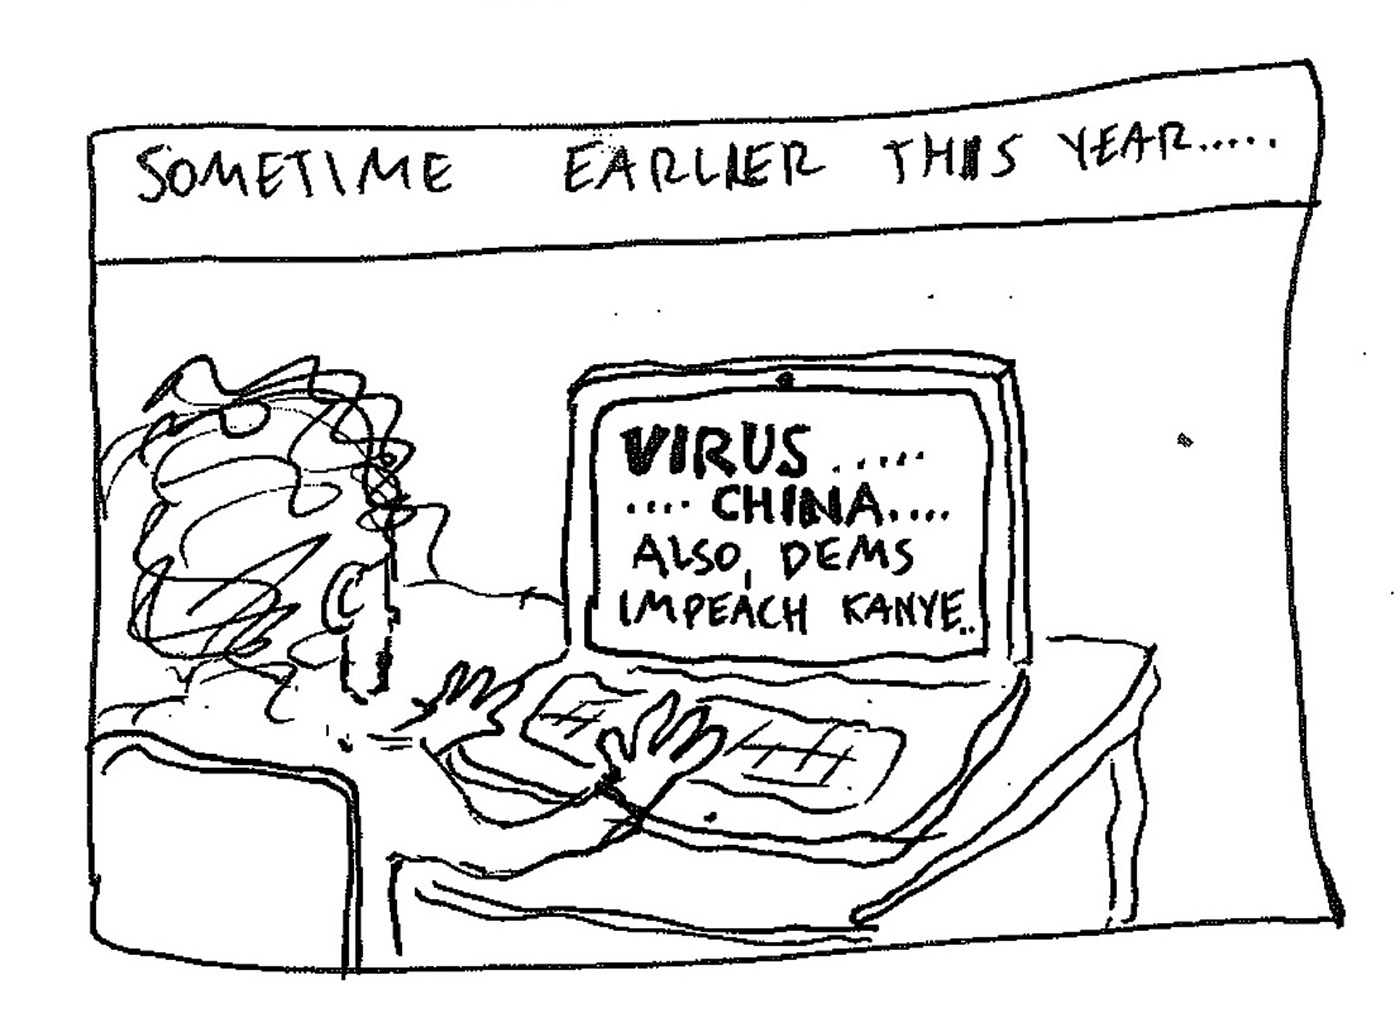 SOMETIME EARLIER THIS YEAR.....
VIRUS .....
.... CHINA....
ALSO, DEMS
IMPEACH KANYE..